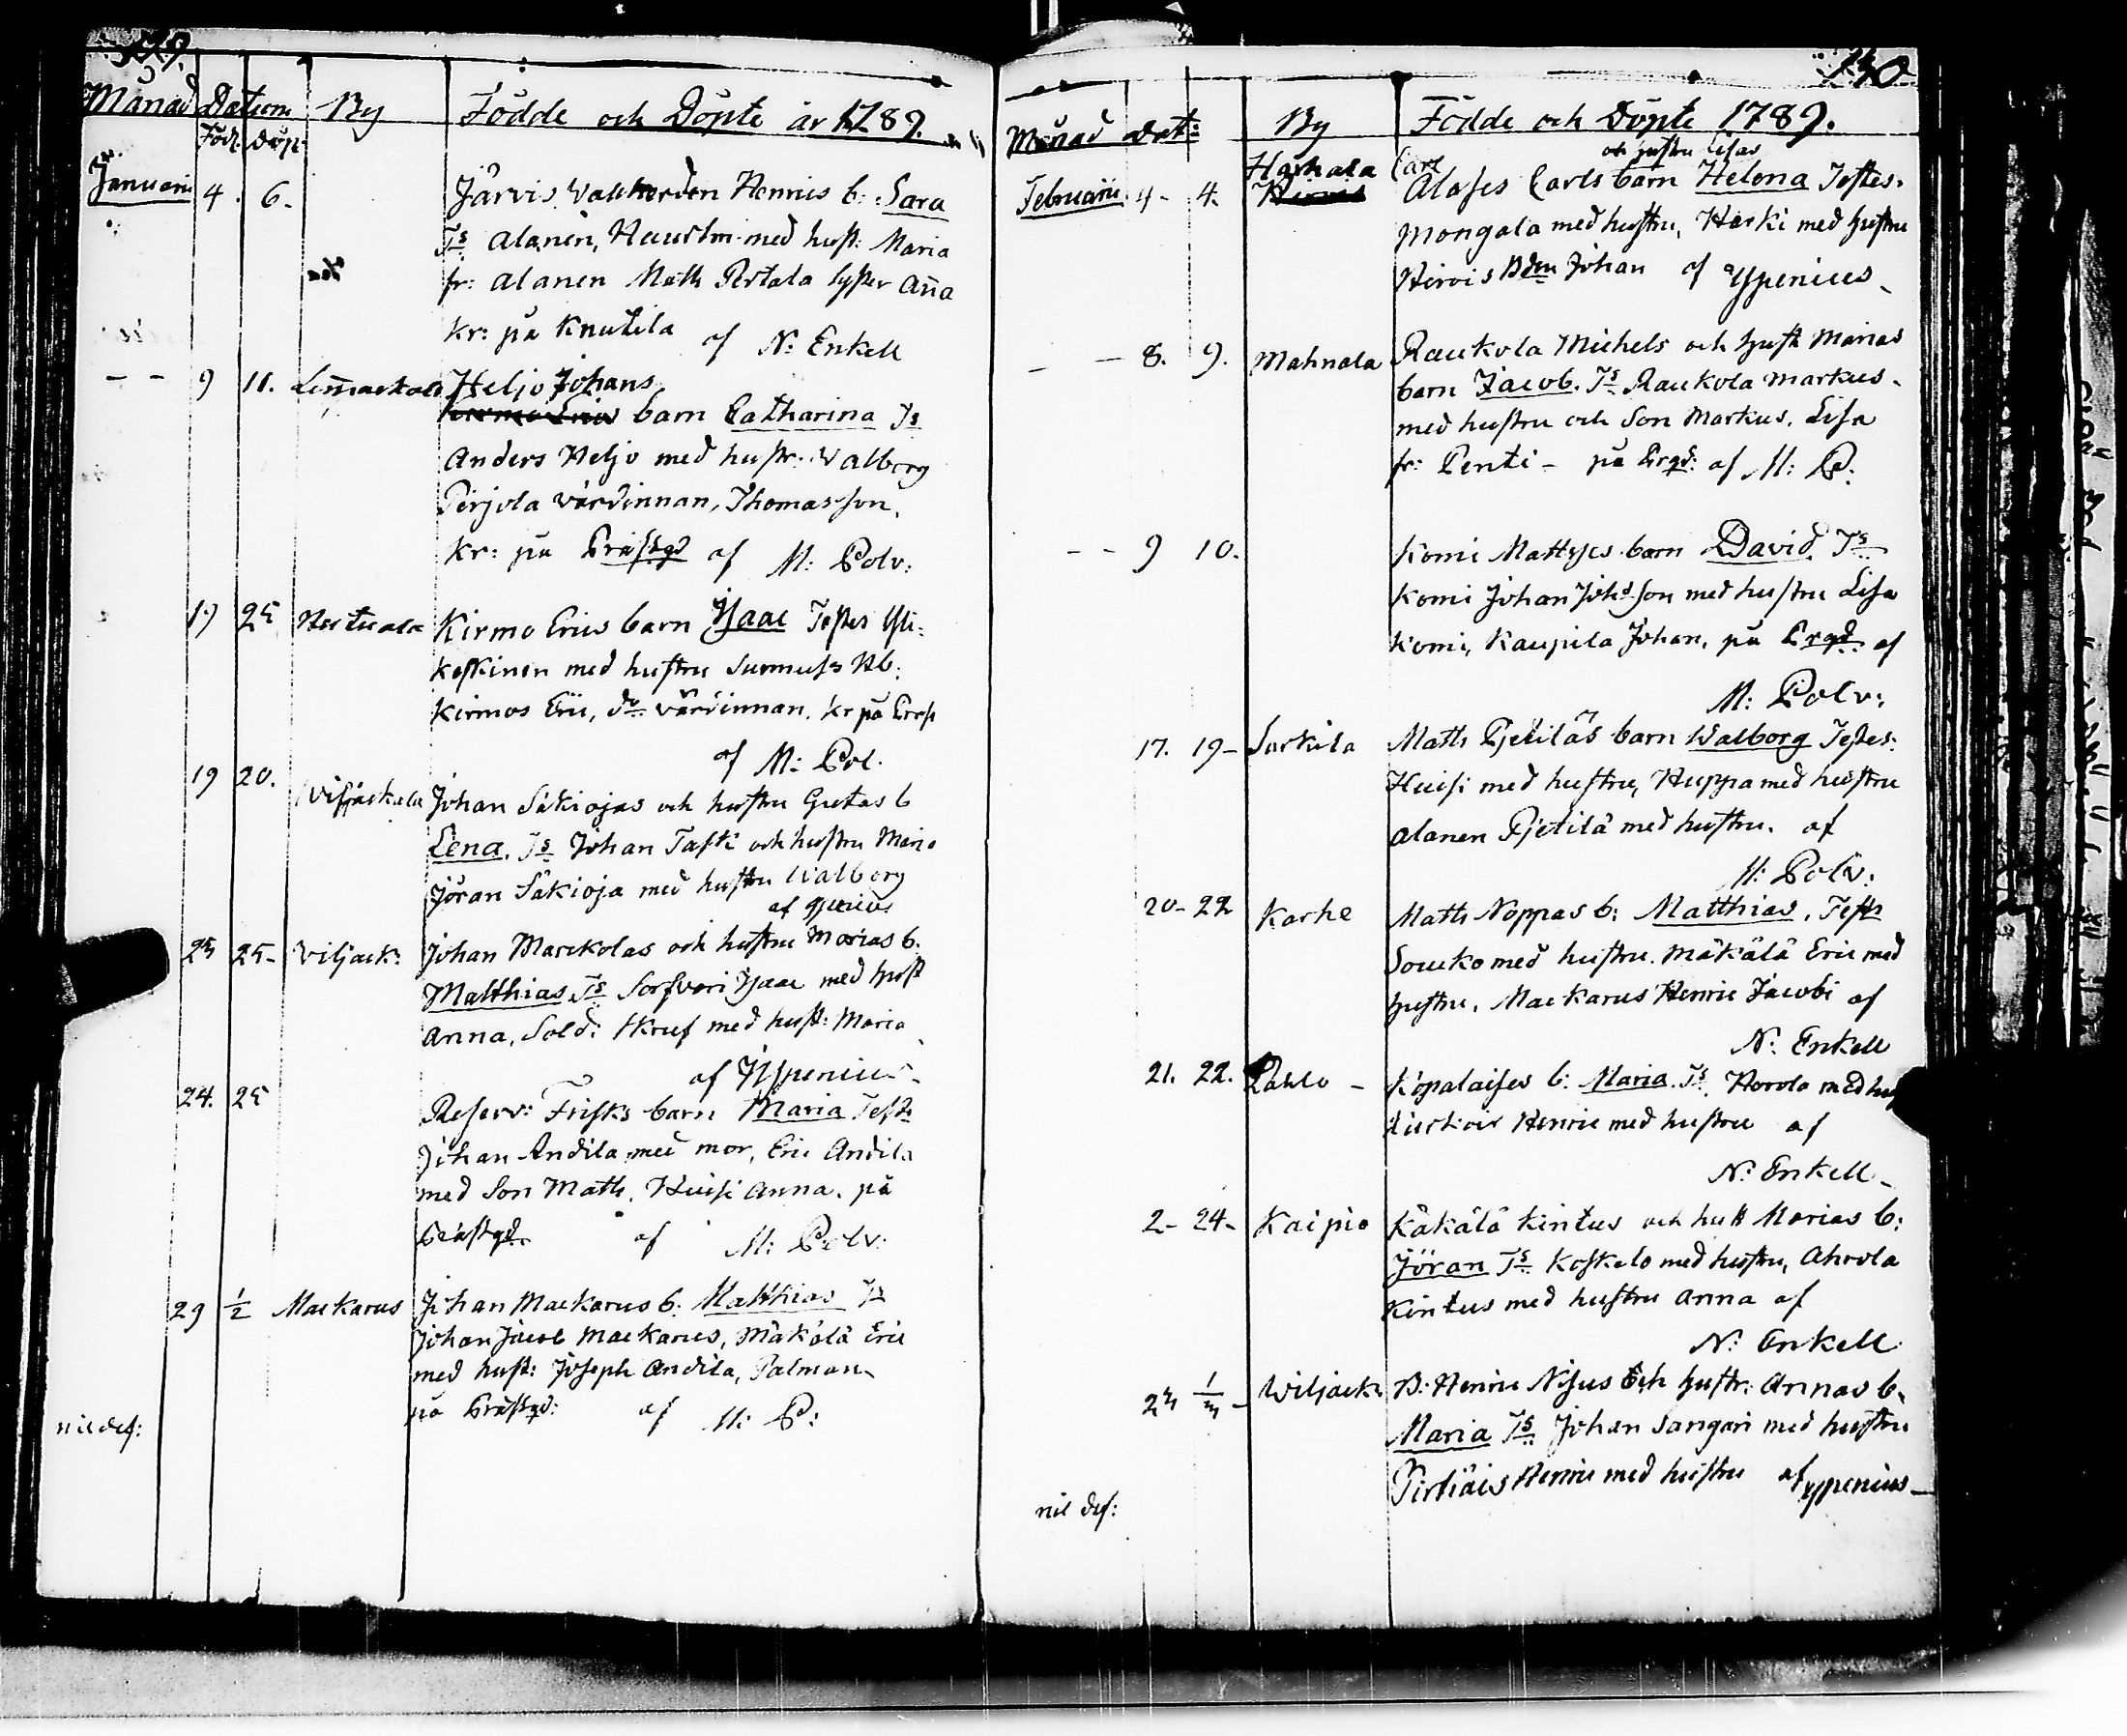 Månad Datum By Födde och Döpte år 1789.
Föd. Döp.
Januarii 4. 6. Järvis Henrics b: Sara
Ts Alanen, med hust: Maria
fr: Alanen Math Pertala syster Anna
kr: på Knutila af N: Enkell
- - 9 11. Heljo Johans
barn Catharina Ts
Anders Heljo med hustr. Walborg
Perjola värdinnan, Thomas son.
kr: på Prästgd af M: Polv:
19 25 Kirmo Erics barn Isaac Testes Yli-
keskinen med hustru
Kirmos Eric, do värdinnan. kr på
af M: Pol.
19 20. Johan Säkiojas och hustru Gretas b
Lena. Ts Johan Taski och hustru Maria
Jöran Säkioja med hustru Walborg
af Ypenius
25- Viljack: Johan Marckolas och hustru Marias b.
Matthias Ts Isaac med hust
Anna, Sold: Skruf med hust: Maria
af Ypenius
24. 25 Reserv: Frisks barn Maria Test:
Johan Andila med mor, Eric Andila
med Son Math. Huisi Anna. på
Prästgd. af M: Polv:
29 1/2 Mackarus Johan Mackarus b: Matthias Ts
Johan Jacob Mackarus, Mäkälä Eric
med hust: Joseph Andila, Palman
på Prästgd: af M: P:
nil def:
140.
Månad Dat: By Födde och Döpte 1789.
Harhala Carl och hustru Lisas
Februarii 4- 4. Alases Carls barn Helena Testes.
Mongola med hustru, Harki med hustru
Hirvis Johan af Ypenius
- 8. 9. Mahnala Raukola Michels och hust Marias
barn Jacob. Ts Raukola Markus
med hustru och Son Markus. Lisa
fr: Penti - på Prgd: af M: P:
- - 9 10. Komi Mattsses barn David Ts
Komi Johan Johs Son med hustru Lisa
Komi, Kaupila Johan, på Prgd af
M: Polv:
17. 19- Sarkila Math Pjetiläs barn Walborg Testes:
Huisi med hustru, Huppa med hustru
Alanen Pjetilä med hustru. af
M: Polv:
20- 22 Karhe Math Noppas b: Matthias. Tests
Souko med hustru. Mäkälä Eric med
hustru. Mackarus Henric Jacobi af
N: Enkell
21. 22. b: Maria Ts. med hu
Henric med hustru af
N: Enkell
2- 24- Kaipio Käkälä Kintus och hust Marias b:
Jöran Ts Koskelo med hustru, Ahrola
Kintus med hustru Anna af
N: Enkell
Wiljack B: Henric Nisus Och hustr: Annas b.
Maria Ts Johan Sangari med hustru
Henric med hustru af Ypenius
nil def: